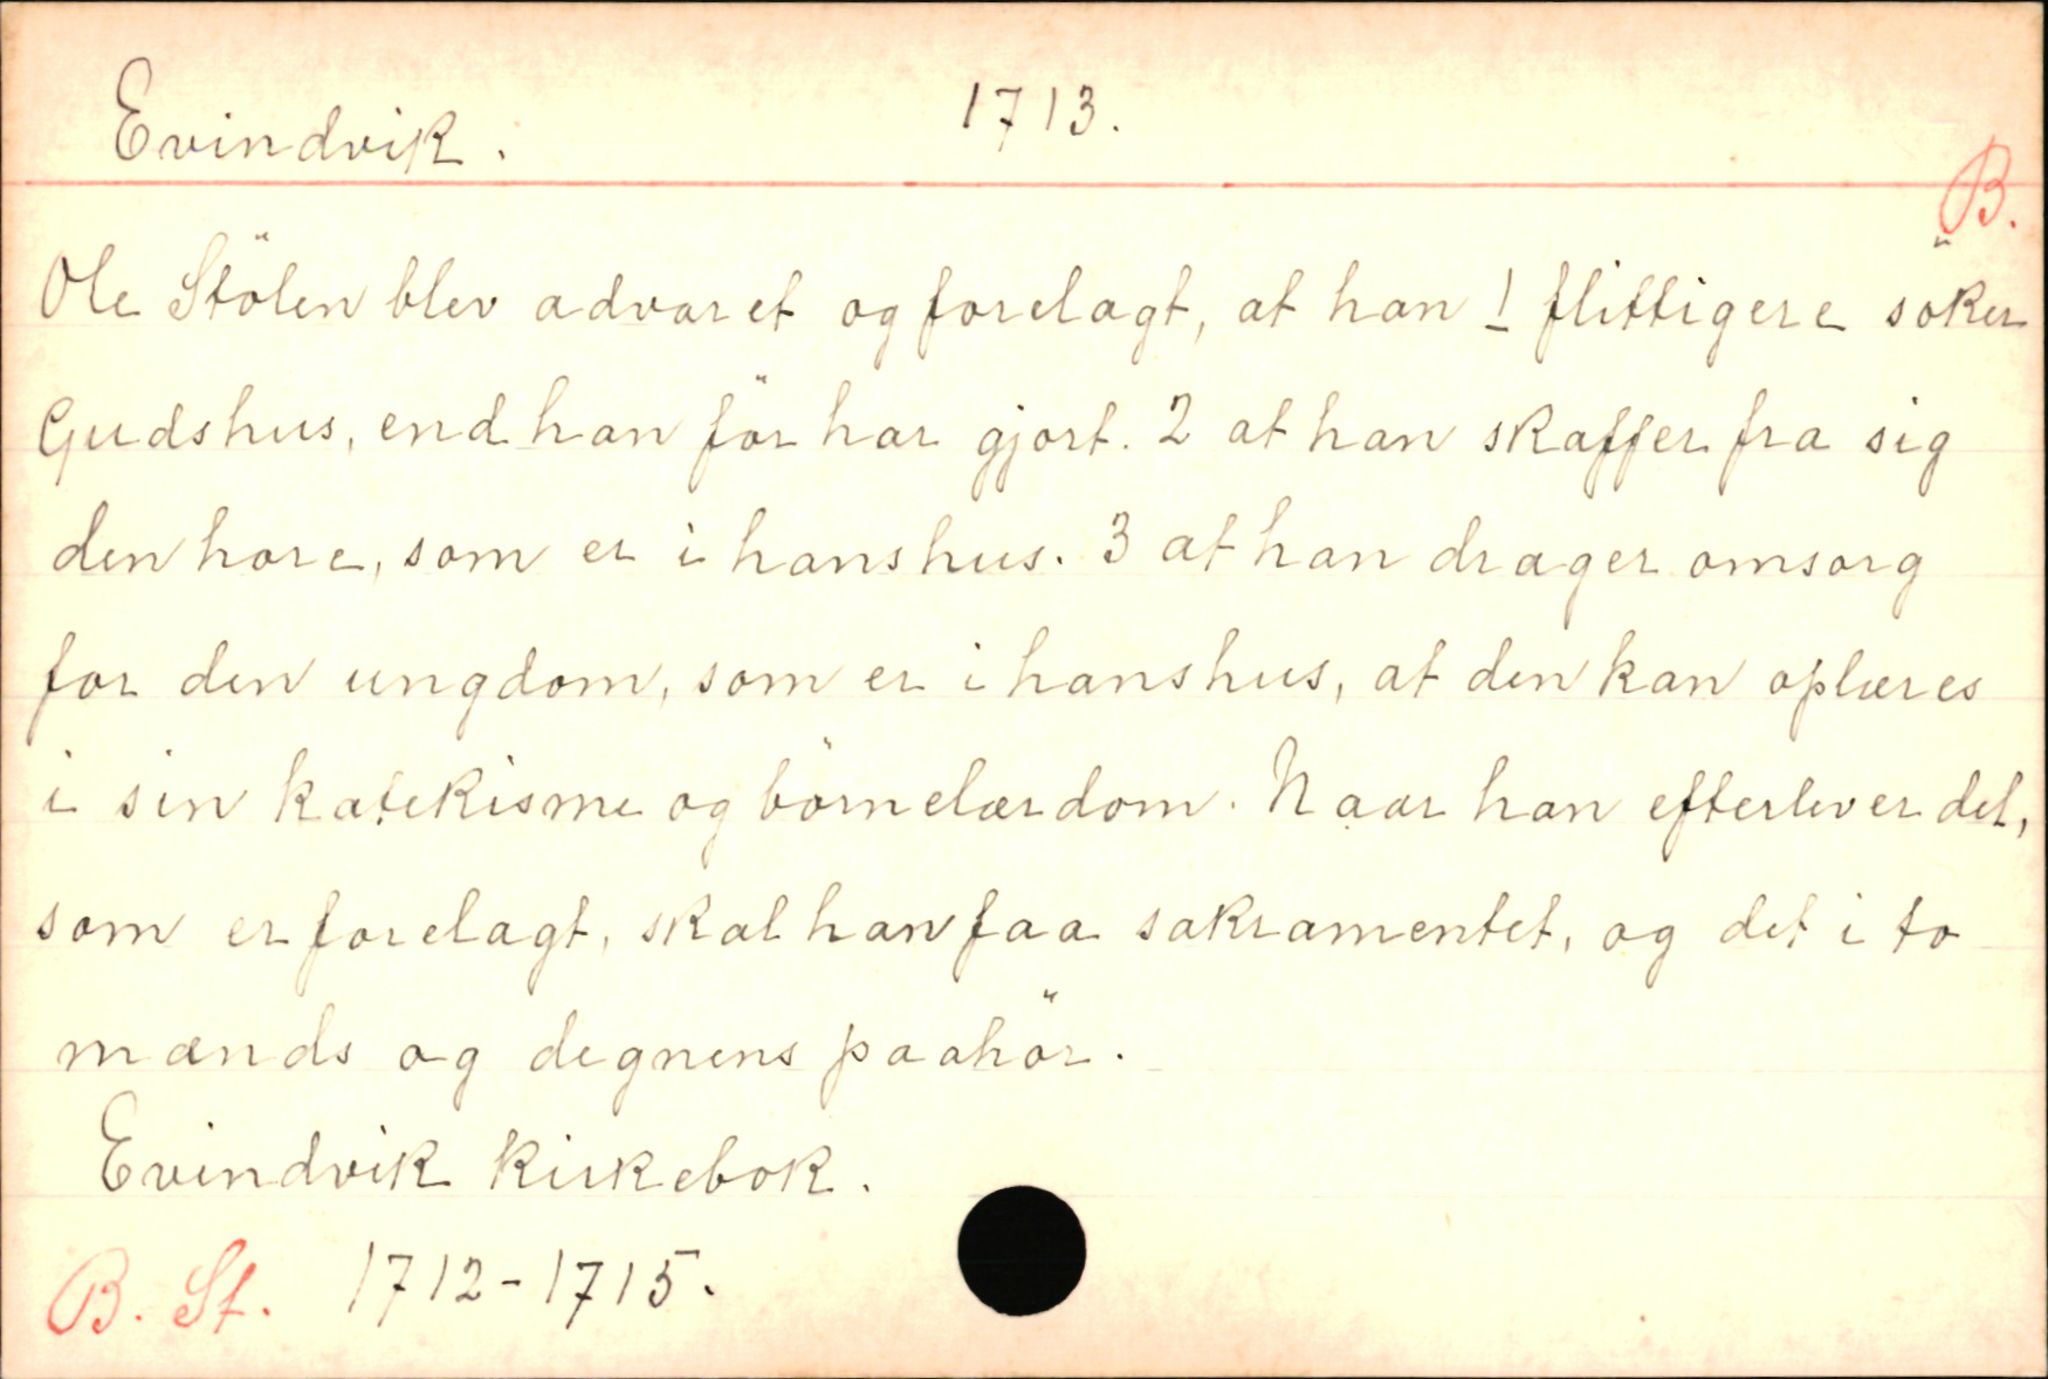 Evindvik. 1713.
B.
Ole Stölen blev advaret og forelagt, at han 1 flittigere söker
Gudshus, end han för har gjort. 2 at han skaffer fra sig
den hore, som er i hans hus. 3 at han drager omsorg
for den ungdom, som er i hans hus, at den kan oplæres
i sin katekisme og börnelærdom. Naar han efterlever det,
som er forelagt, skal han faa sakramentet, og det i to
mænds og degnens paahör.
Evindvik kirkebok.
B. St. 1712-1715.